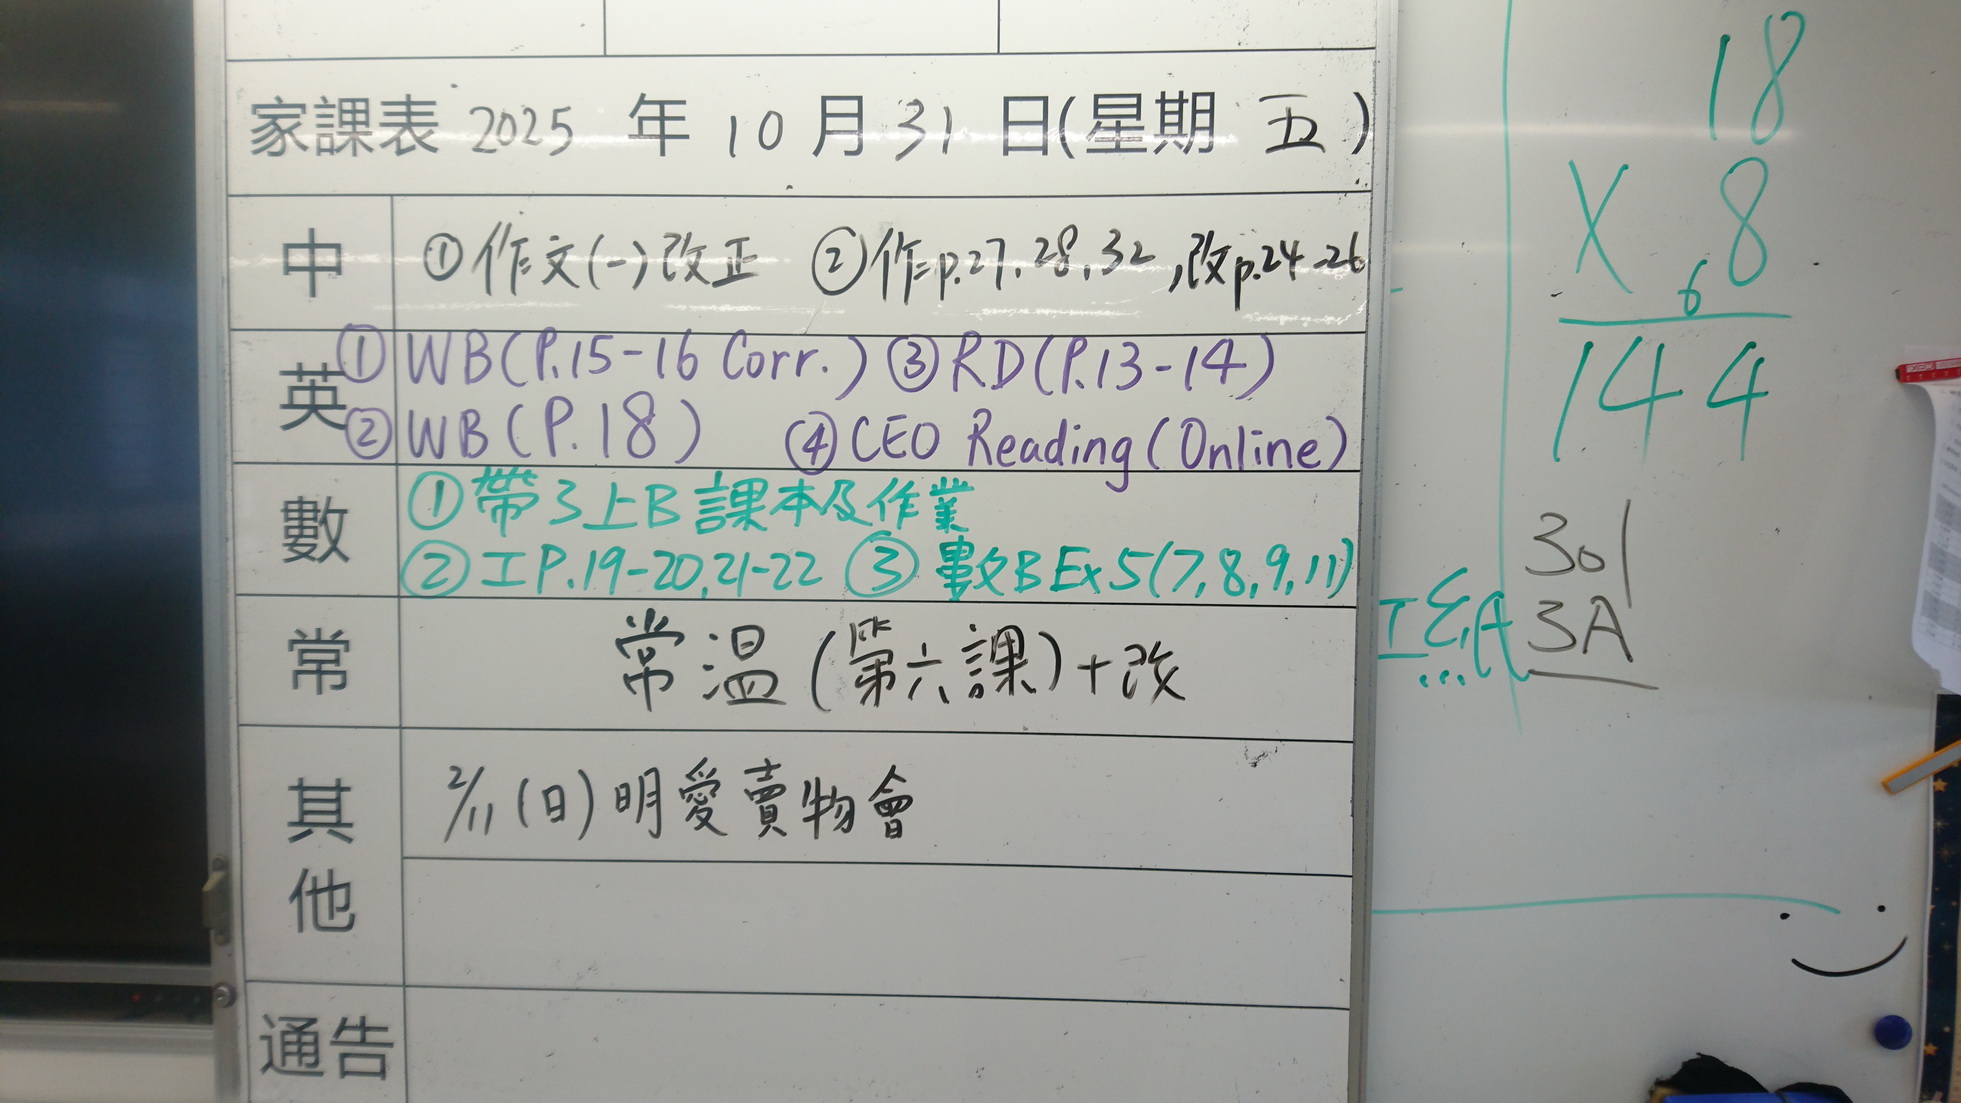 家課表 2025 年 10 月 31 日(星期 五)
中 ①作文(一)改正 ②作p.27,28,32,改p.24-26
英 ①WB(P.15-16 Corr.) ③RD(P.13-14)
②WB(P.18) ④CEO Reading(Online)
數 ①帶3上B課本及作業
②工P.19-20,21-22 ③數BEx5(7,8,9,11)
常 常溫(第六課)+改
其他 2/11(日)明愛賣物會
通告
18
X 8
6
144
301
3A